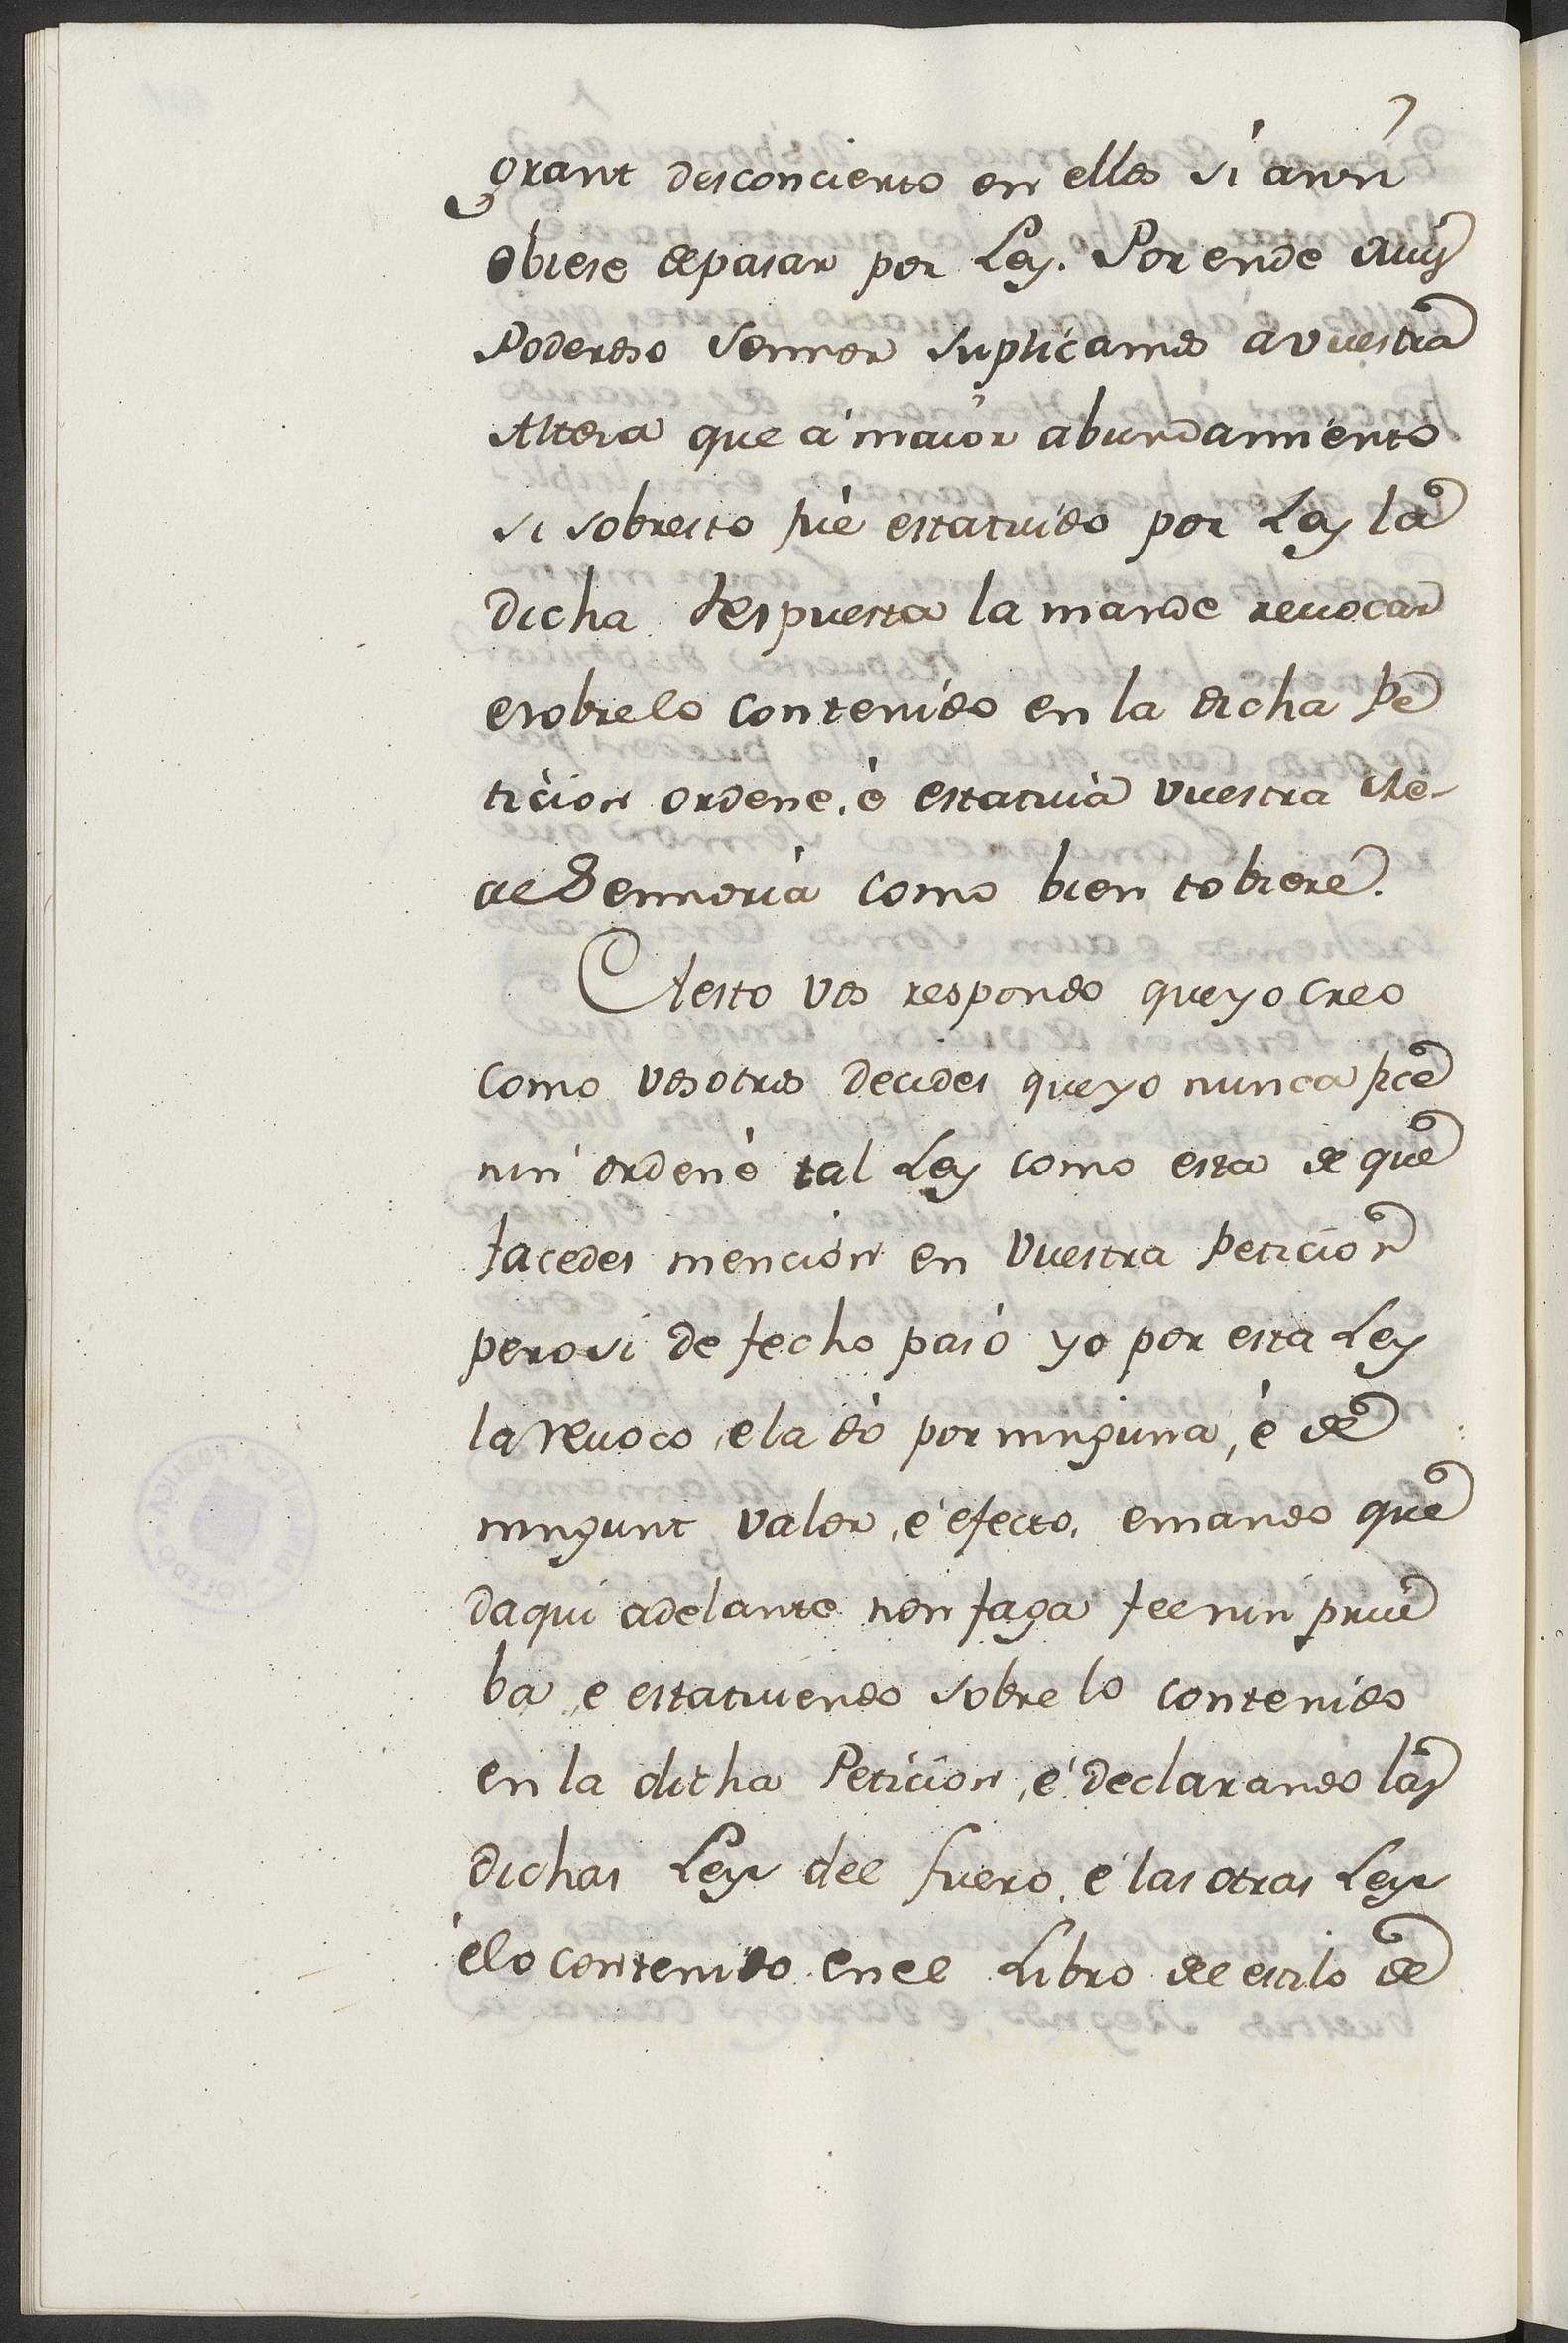 grant desconcierto en ellos si ansi
obiese de pasar por Ley. Por ende muy
Poderoso Sennor suplicamos a vuestra
Alteza que a maior abundamiento
si sobresto fué estatuido por Ley la
dicha respuesta la mande revocar
e sobre lo contenido en la dicha pe
ticion ordene, é estatuia vuestra Re-
al Sennoria como bien tobiere.
A esto vos respondo que yo creo
como vosotros decides que yo nunca fice
nin ordené tal Ley como esta de que
facedes mencion en vuestra peticion
pero si de fecho pasó yo por esta Ley
la revoco, e la dó por ninguna, é de
ningunt valor, é efecto, e mando que
daqui adelante non faga fee nin prue
ba, e estatuiendo sobre lo contenido
en la dicha Peticion, é declarando las
dichas Leyes del fuero, é las otras Leyes
é lo contenido en el Libro del estilo de
TOLEDO